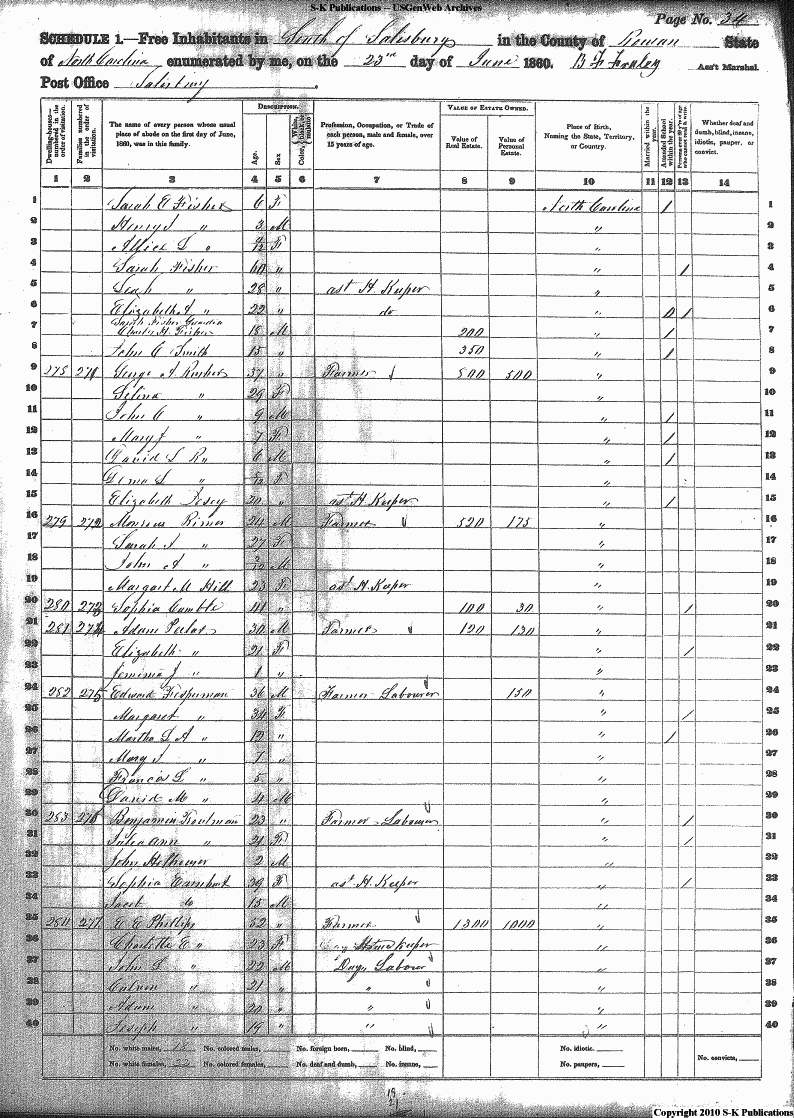 S-K Publications -- USGenWeb Archives
Page No. 34
SCHEDULE 1.—Free Inhabitants in South of Salisbury in the County of Rowan State
of North Carolina enumerated by me, on the 23rd day of June 1860. B F Fraley Ass't Marshal.
Post Office Salisbury.
Dwelling-houses—numbered in the order of visitation.
Families numbered in the order of visitation.
The name of every person whose usual place of abode on the first day of June, 1860, was in this family.
DESCRIPTION.
Age.
Sex
Color,
Profession, Occupation, or Trade of each person, male and female, over 15 years of age.
VALUE OF ESTATE OWNED.
Value of Real Estate.
Value of Personal Estate.
Place of Birth, Naming the State, Territory, or Country.
Married within the year.
Attended School within the year.
Whether deaf and dumb, blind, insane, idiotic, pauper, or convict.
1 2 3 4 5 6 7 8 9 10 11 12 13 14
1 Sarah E Fisher 6 F North Carolina / 1
2 Henry J " 3 M " 2
3 Allice L " F " 3
4 Sarah Fisher 60 " " / 4
5 Leah " 28 " ast H. Keeper " 5
6 Elizabeth A " 22 " do " / 6
7 Sarah Fisher Guardia
Fisher 18 M 200 " / 7
8 John C Smith 15 " 350 " / 8
9 275 271 George A 37 " Farmer 500 500 " 9
10 Selina " 29 F " 10
11 John C " 9 M " / 11
12 Mary J " 7 F " / 12
13 David L R " 6 M " / 13
14 L " F " 14
15 Elizabeth 20 " ast H. Keeper " / 15
16 279 272 Monroe Rimer 24 M Farmer 520 175 " 16
17 Sarah J " 27 F " 17
18 John A " M " 18
19 Margaret M Hill 23 F ast H. Keeper " 19
20 280 273 Sophia 41 " 100 30 " / 20
21 281 274 Adam Peelar 30 M Farmer 120 130 " 21
22 Elizabeth " 21 F " / 22
23 Jemima J " 1 " " 23
24 282 275 Edward Fesperman 36 M Farmer Labourer 150 " 24
25 Margaret " 34 F " / 25
26 Martha L A " 12 " " / 26
27 Mary J " 7 " " 27
28 Frances L " 5 " " 28
29 David M " 4 M " 29
30 283 276 Benjamin Troutman 23 " Farmer Labourer " / 30
31 Julia Ann " 21 F " / 31
32 John 2 M " 32
33 Sophia Earnhart 39 F ast H. Keeper " / 33
34 Jacob do 15 M " 34
35 284 277 E E Phillips 52 " Farmer 1300 1000 " 35
36 Charlotte E " 23 F House Keeper " 36
37 John L " 22 M Day Labour " 37
38 Calvin " 21 " " " 38
39 Adam " 20 " " " 39
40 Joseph " 19 " " " 40
No. white males, 18 No. colored males, No. foreign born, No. blind, No. idiotic.
No. white females, 22 No. colored females, No. deaf and dumb, No. insane, No. paupers, No. convicts,
19
Copyright 2010 S-K Publications